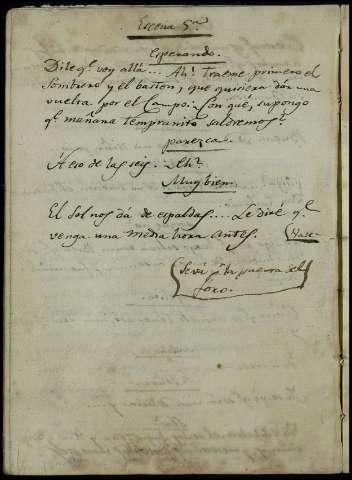 Escena 5.ª
Esperando.
Dile q.e voy allá... Ah! Traeme primero el
Sombrero y el bastón, que quisiera dár una
vuelta por el Campo. Con qué, supongo
q.e mañana tempranito saldremos?
parezca.
A eso de las seis. Eh?
Muy bien.
El Sol nos dá de espaldas... Le diré q.e
venga una media hora antes. (Vase.
(Se vá p.r la puerta del
foro.